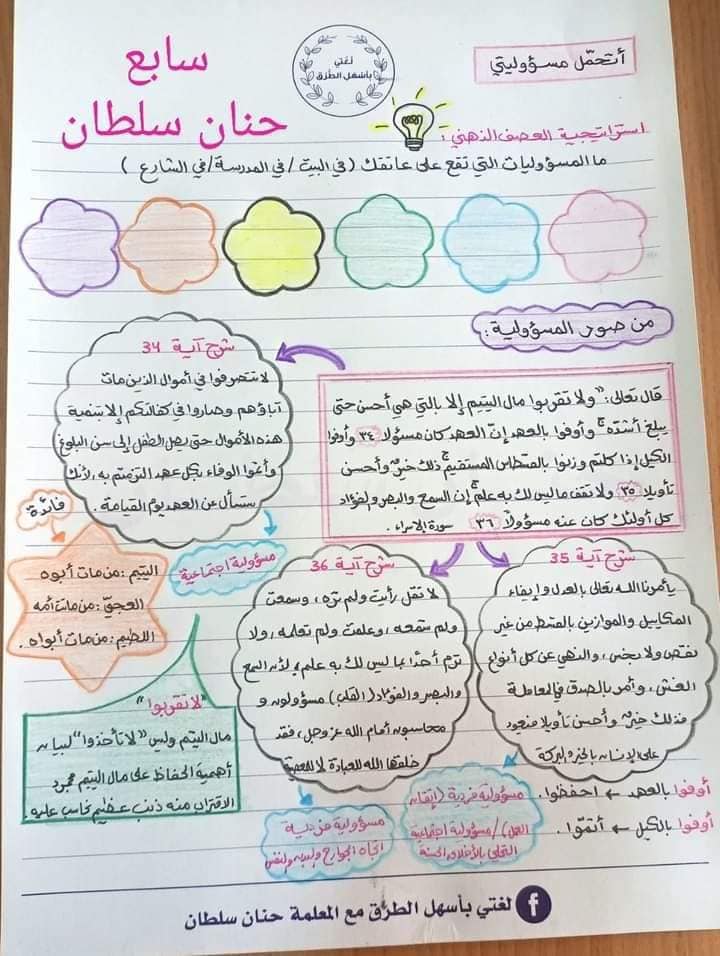 سابع
حنان سلطان
لغتي
بأسهل الطرق
أتحمّل مسؤوليتي
استراتيجية العصف الذهني:
ما المسؤوليات التي تقع على عاتقك (في البيت / في المدرسة / في الشارع)
من صور المسؤولية:
قال تعالى: "ولا تقربوا مال اليتيم إلا بالتي هي أحسن حتى
يبلغ أشدّه وأوفوا بالعهد إنّ العهد كان مسؤولا ٣٤ وأوفوا
الكيل إذا كلتم وزنوا بالقسطاس المستقيم ذلك خيرٌ وأحسن
تأويلا ٣٥ ولا تقف ما ليس لك به علم إن السمع والبصر والفؤاد
كل أولئك كان عنه مسؤولاً ٣٦ سورة الإسراء.
شرح آية 34
لا تتصرفوا في أموال الذين مات
آباؤهم وصاروا في كفالتكم إلا بتنمية
هذه الأموال حتى يصل الطفل إلى سن البلوغ
وأتمّوا الوفاء بكل عهد التزمتم به، لأنك
ستسأل عن العهد يوم القيامة.
مسؤولية اجتماعية
فائدة
اليتيم: من مات أبوه
العجيّ: من ماتت أمه
اللطيم: من مات أبواه.
شرح آية 35
يأمرنا الله تعالى بالعدل وإيفاء
المكاييل والموازين بالقسط من غير
نقص ولا بخس، والنهي عن كل أنواع
الغش، وأمر بالصدق في المعاملة
فذلك خيرٌ وأحسن تأويلا فتعود
على الإنسان بالخير والبركة
شرح آية 36
لا تقل رأيت ولم تره، وسمعت
ولم تسمعه، وعلمت ولم تعلمه، ولا
ترمِ أحدًا بما ليس لك به علم، لأن السمع
والبصر والفؤاد (القلب) مسؤولون و
محاسبون أمام الله عز وجل، فقد
خلقها الله للعبادة لا للمعصية
"لا تقربوا"
مال اليتيم وليس "لا تأخذوا" لبيان
أهمية الحفاظ على مال اليتيم فمجرد
الاقتراب منه ذنب عظيم نحاسب عليه.
مسؤولية فردية (إتقان
العمل) / مسؤولية اجتماعية
التحلي بالأخلاق الحسنة
مسؤولية فردية
اتجاه الجوارح
أوفوا بالعهد ← احفظوا.
أوفوا بالكيل ← أتمّوا.
لغتي بأسهل الطرق مع المعلمة حنان سلطان